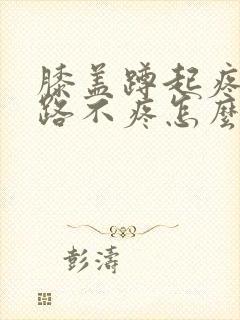 膝盖蹲起疼
路不疼怎麼
彭濤